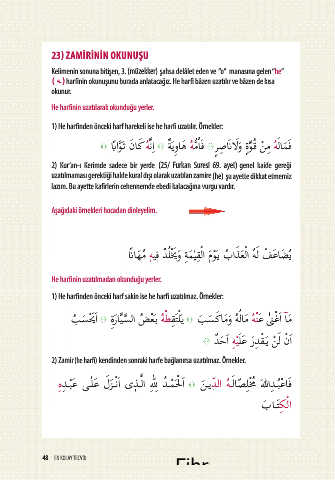 23) ZAMİRİNİN OKUNUŞU
Kelimenin sonuna bitişen, 3. (müzekker) şahsa delâlet eden ve "o" manasına gelen "he"
( ـه ) harfinin okunuşunu burada anlatacağız. He harfi bâzen uzatılır ve bâzen de kısa
okunur.
He harfinin uzatılarak okunduğu yerler.
1) He harfinden önceki harf harekeli ise he harfi uzatılır. Örnekler:
فَمَالَهُ مِنْ قُوَّةٍ وَلَا نَاصِرٍ فَأُمُّهُ هَاوِيَةٌ إِنَّهُ كَانَ تَوَّابًا
2) Kur'an-ı Kerimde sadece bir yerde (25/ Furkan Suresi 69. ayet) genel kaide gereği
uzatılmaması gerektiği halde kural dışı olarak uzatılan zamire (he) şu ayette dikkat etmemiz
lazım. Bu ayette kafirlerin cehennemde ebedi kalacağına vurgu vardır.
Aşağıdaki örnekleri hocadan dinleyelim.
يُضَاعَفْ لَهُ الْعَذَابُ يَوْمَ الْقِيٰمَةِ وَيَخْلُدْ فِيهِ مُهَانًا
He harfinin uzatılmadan okunduğu yerler.
1) He harfinden önceki harf sakin ise he harfi uzatılmaz. Örnekler:
مَٓا اَغْنٰى عَنْهُ مَالُهُ وَمَا كَسَبَ يَلْتَقِطْهُ بَعْضُ السَّيَّارَةِ اَيَحْسَبُ
اَنْ لَنْ يَقْدِرَ عَلَيْهِ اَحَدٌ
2) Zamir (he harfi) kendinden sonraki harfe bağlanırsa uzatılmaz. Örnekler.
فَاعْبُدِ اللهَ مُخْلِصًا لَهُ الدّينَ اَلْحَمْدُ لِلهِ الَّذِى اَنْزَلَ عَلٰى عَبْدِهِ
الْكِتَابَ
48 EN KOLAY TECVİD